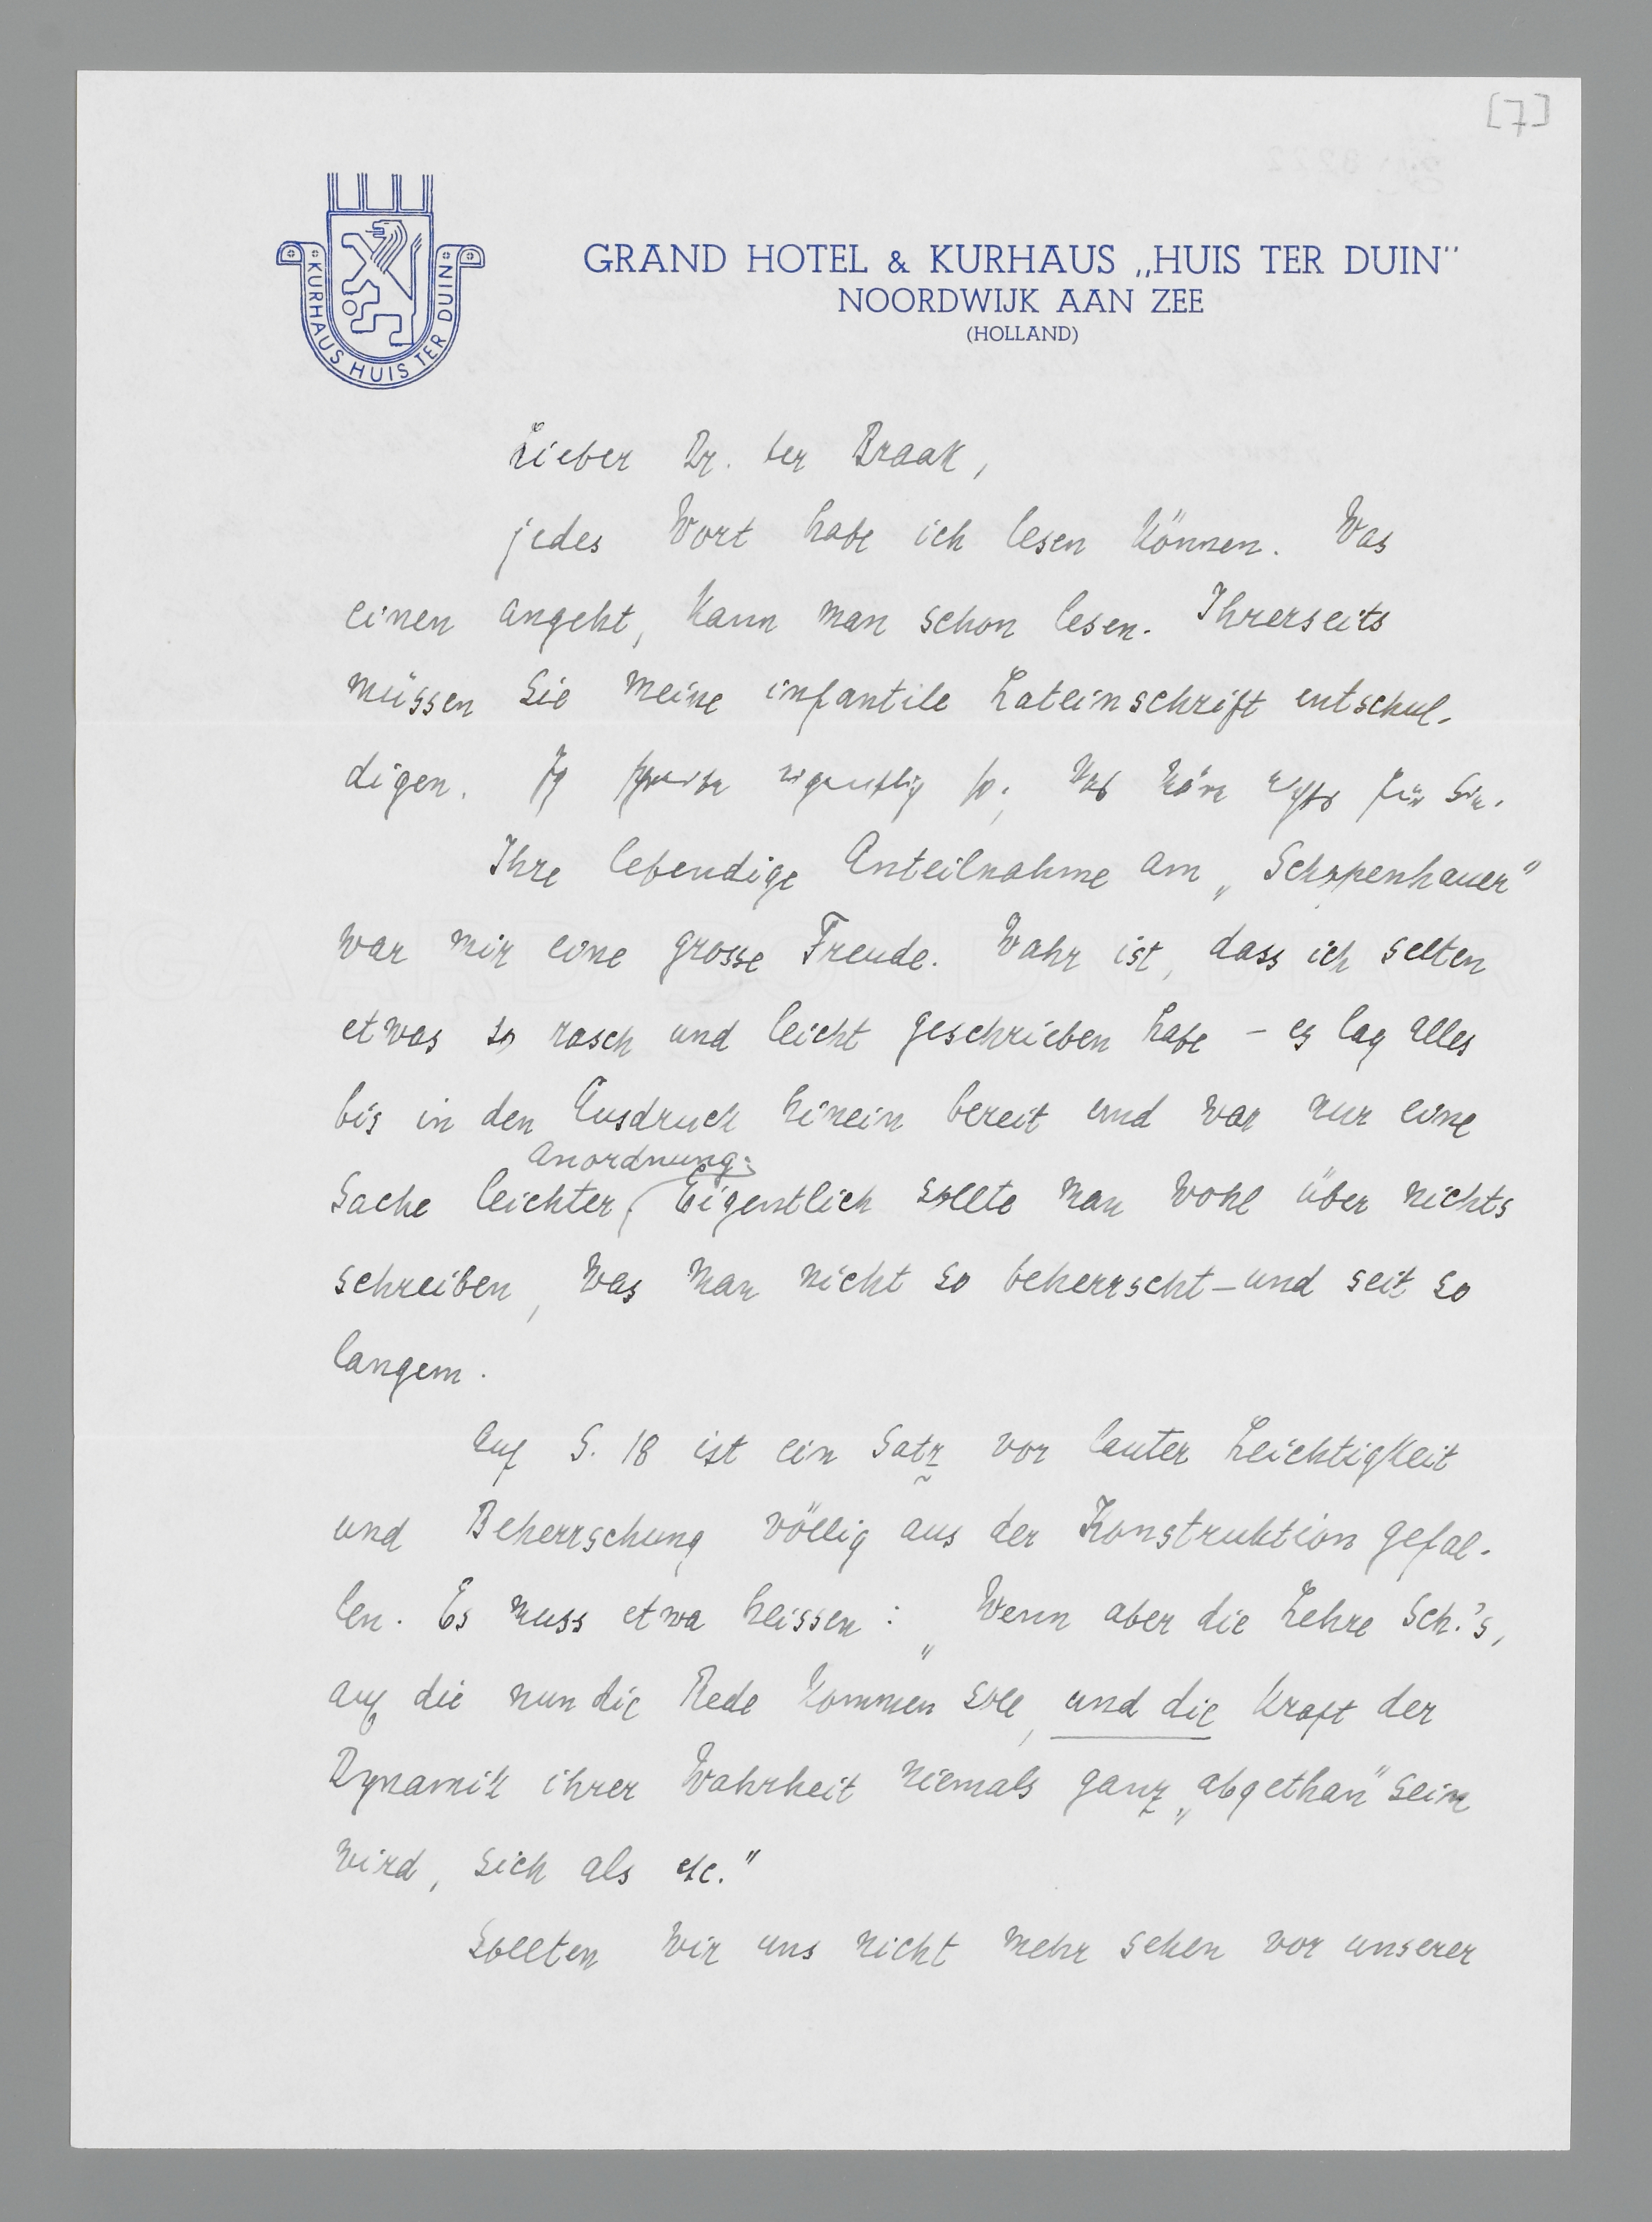 [7]
KURHAUS HUIS TER DUIN
GRAND HOTEL & KURHAUS „HUIS TER DUIN"
NOORDWIJK AAN ZEE
(HOLLAND)
Lieber Dr. ter Braak,
jedes Wort habe ich lesen können. Was
einen angeht, kann man schon lesen. Ihrerseits
müssen Sie meine infantile Lateinschrift entschul-
digen. Ich schreibe eigentlich so; das wäre nichts für Sie.
Ihre lebendige Anteilnahme am „Schopenhauer"
war mir eine grosse Freude. Wahr ist, dass ich selten
etwas so rasch und leicht geschrieben habe – es lag alles
bis in den Ausdruck hinein bereit und war nur eine
Anordnung.
Sache leichter Eigentlich sollte man wohl über nichts
schreiben, was man nicht so beherrscht – und seit so
langem.
Auf S. 18 ist ein Satz vor lauter Leichtigkeit
und Beherrschung völlig aus der Konstruktion gefal-
len. Es muss etwa heissen: „Wenn aber die Lehre Sch.'s,
auf die nun die Rede kommen soll, und die kraft der
Dynamik ihrer Wahrheit niemals ganz „abgethan" sein
wird, sich als etc."
Sollten wir uns nicht mehr sehen vor unserer